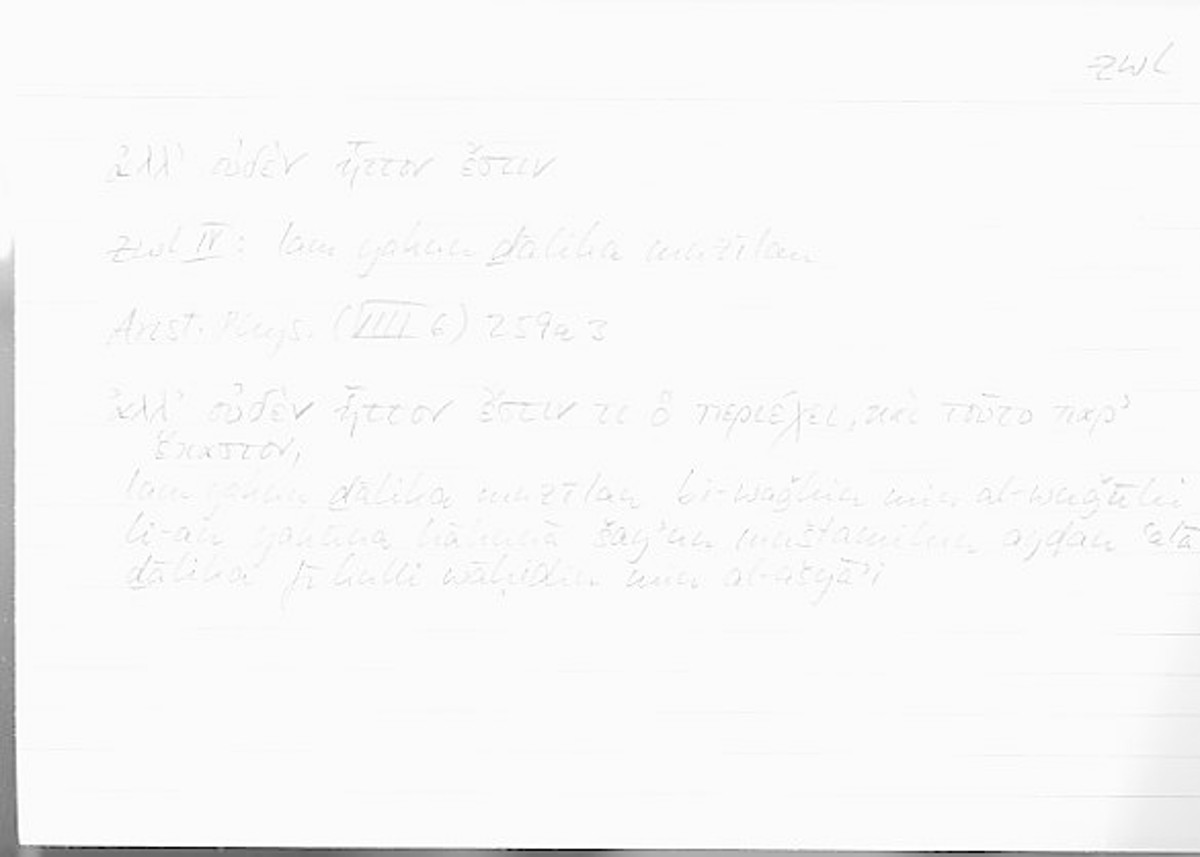 zwl
ἀλλ' οὐδὲν ἧττον ἔστιν
zwl IV: lam yakun ḏālika muzīlan
Arist. Phys. (VIII 6) 259a3
ἀλλ' οὐδὲν ἧττον ἔστιν τι ὃ περιέχει, καὶ τοῦτο παρ'
ἕκαστον,
lam yakun ḏālika muzīlan bi-waǧhin min al-wuǧūhi
li-an yakūna hāhunā šayʾun muštamilun ayḍan ʿalā
ḏālika fī kulli wāḥidin min al-ašyāʾi